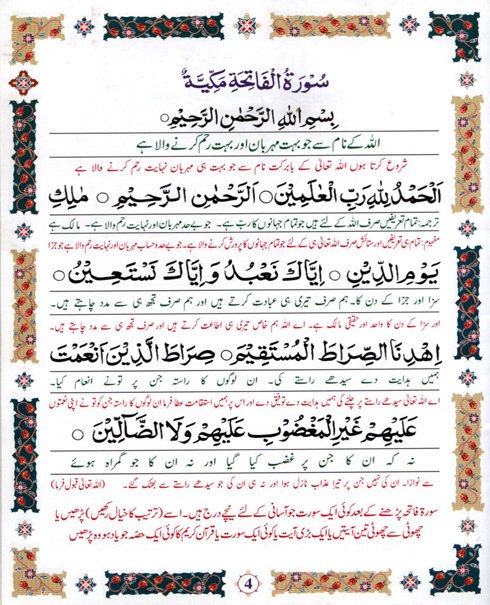 سُوْرَةُ الْفَاتِحَةِ مَكِّيَّةٌ
بِسْمِ اللهِ الرَّحْمٰنِ الرَّحِيْمِ
اللہ کے نام سے جو بہت مہربان اور بہت رحم کرنے والا ہے
شروع کرتا ہوں اللہ تعالی کے بابرکت نام سے جو بہت ہی مہربان نہایت رحم کرنے والا ہے
اَلْحَمْدُ لِلّٰهِ رَبِّ الْعٰلَمِيْنَ ○ الرَّحْمٰنِ الرَّحِيْمِ ○ مٰلِكِ
ترجمہ: تمام تعریفیں صرف اللہ کے لئے ہیں جو تمام جہانوں کا رب ہے۔ جو بے حد مہربان اور نہایت رحم والا ہے۔ مالک ہے
مفہوم: تمام ہی تعریفیں اور ستائش صرف اللہ تعالی ہی کے لئے جو تمام جہانوں کا پرورش کرنے والا ہے۔ جو بے حد و حساب مہربان اور نہایت رحم والا ہے جو جزا
يَوْمِ الدِّيْنِ ○ اِيَّاكَ نَعْبُدُ وَ اِيَّاكَ نَسْتَعِيْنُ ○
سزا اور جزا کے دن کا۔ ہم صرف تیری ہی عبادت کرتے ہیں اور ہم صرف تجھ ہی سے مدد چاہتے ہیں۔
اور سزا کے دن کا واحد اور حقیقی مالک ہے۔ اے اللہ ہم خاص تیری ہی اطاعت کرتے ہیں اور صرف تجھ ہی سے مدد چاہتے ہیں۔
اِهْدِنَا الصِّرَاطَ الْمُسْتَقِيْمَ ○ صِرَاطَ الَّذِيْنَ اَنْعَمْتَ
ہمیں ہدایت دے سیدھے راستے کی۔ ان لوگوں کا راستہ جن پر تونے انعام کیا۔
اے اللہ تعالی سیدھے راستے پر چلنے کی ہمیں ہدایت دے توفیق دے اور اس پر ہمیں استقامت عطا فرما ان لوگوں کا راستہ جن کو تو نے اپنی نعمتوں
عَلَيْهِمْ غَيْرِ الْمَغْضُوْبِ عَلَيْهِمْ وَلَا الضَّآلِّيْنَ ○
نہ کہ ان کا جن پر غضب کیا گیا اور نہ ان کا جو گمراہ ہوئے
سے نوازا۔ ان کی نہیں جن پر تیرا عذاب نازل ہوا اور نہ ہی ان کی جو سیدھے راستے سے بھٹک گئے۔ (اللہ تعالی قبول فرما)
سورۃ فاتحہ پڑھنے کے بعد کوئی ایک سورت جو آسانی کے لئے نیچے درج ہیں۔ اسے (ترتیب کا خیال رکھیں) پڑھیں یا
چھوٹی سے چھوٹی تین آیتیں یا ایک بڑی آیت یا کوئی ایک سورت یا قرآن کریم کا کوئی ایک حصہ جو یاد ہو وہ پڑھیں
4